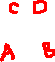 C D
A B